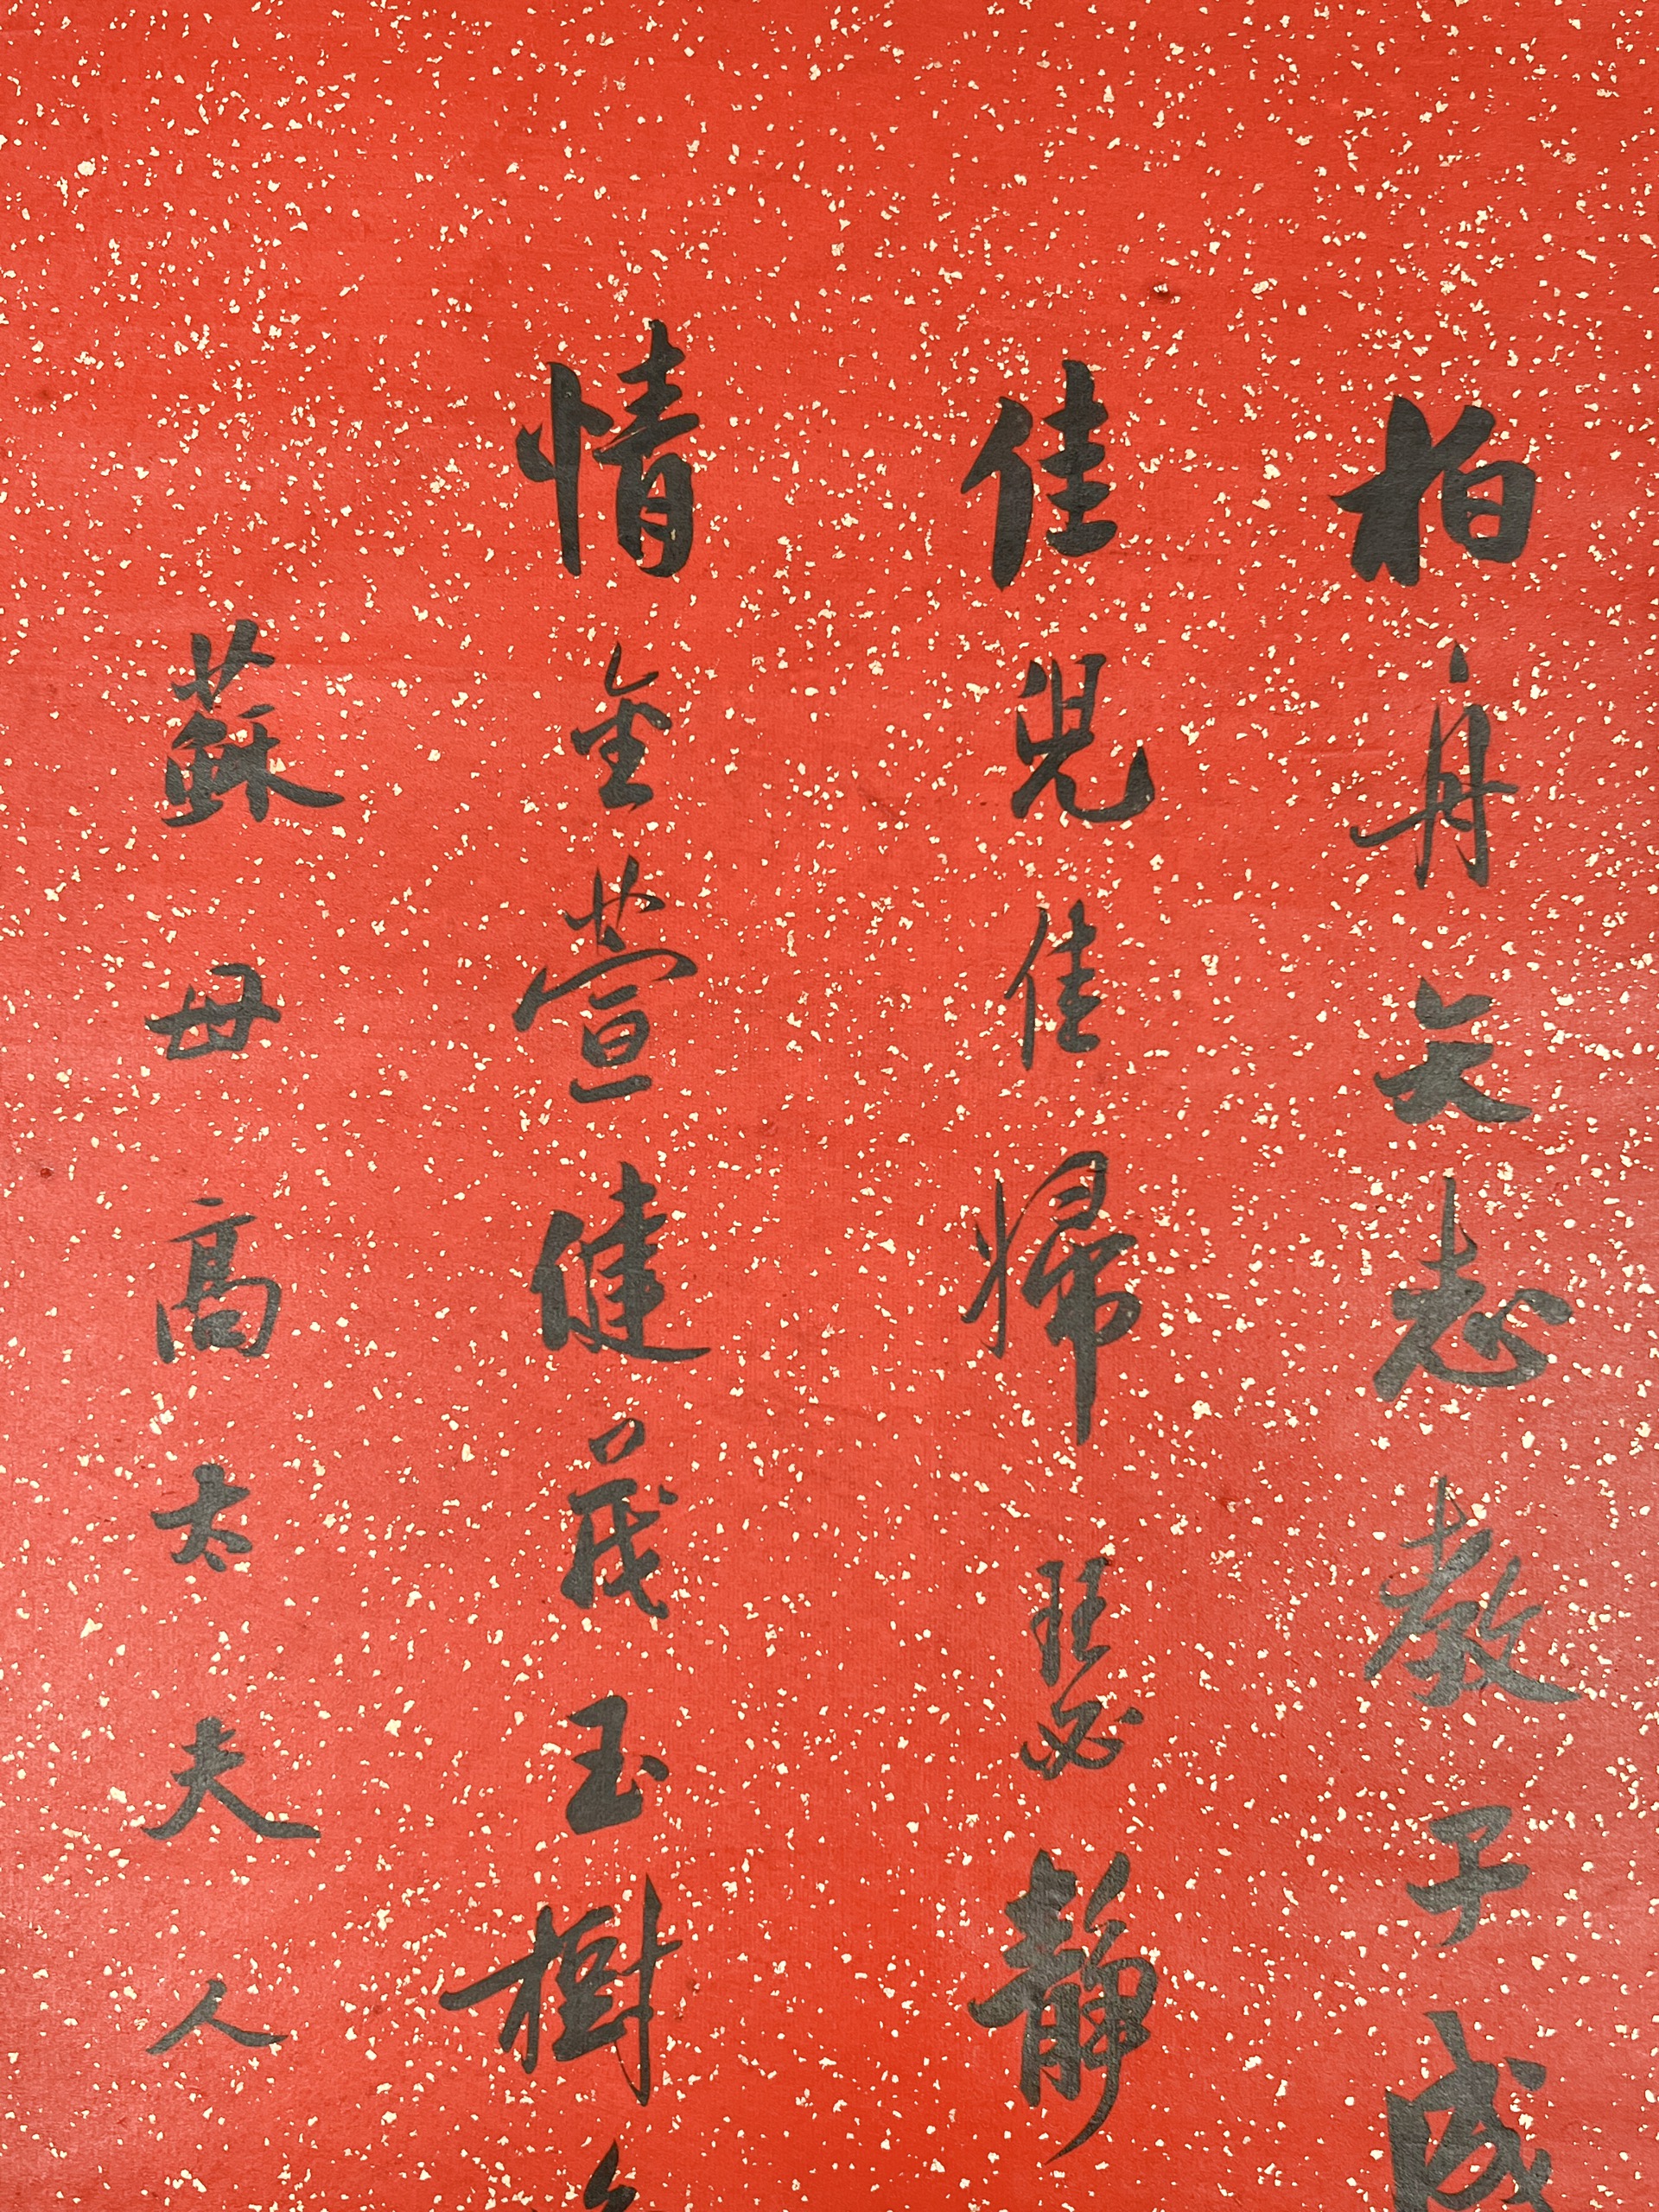 柏舟矢志教子成
佳兒佳婦瑟靜
情金萱健茂玉樹
蘇母高太夫人